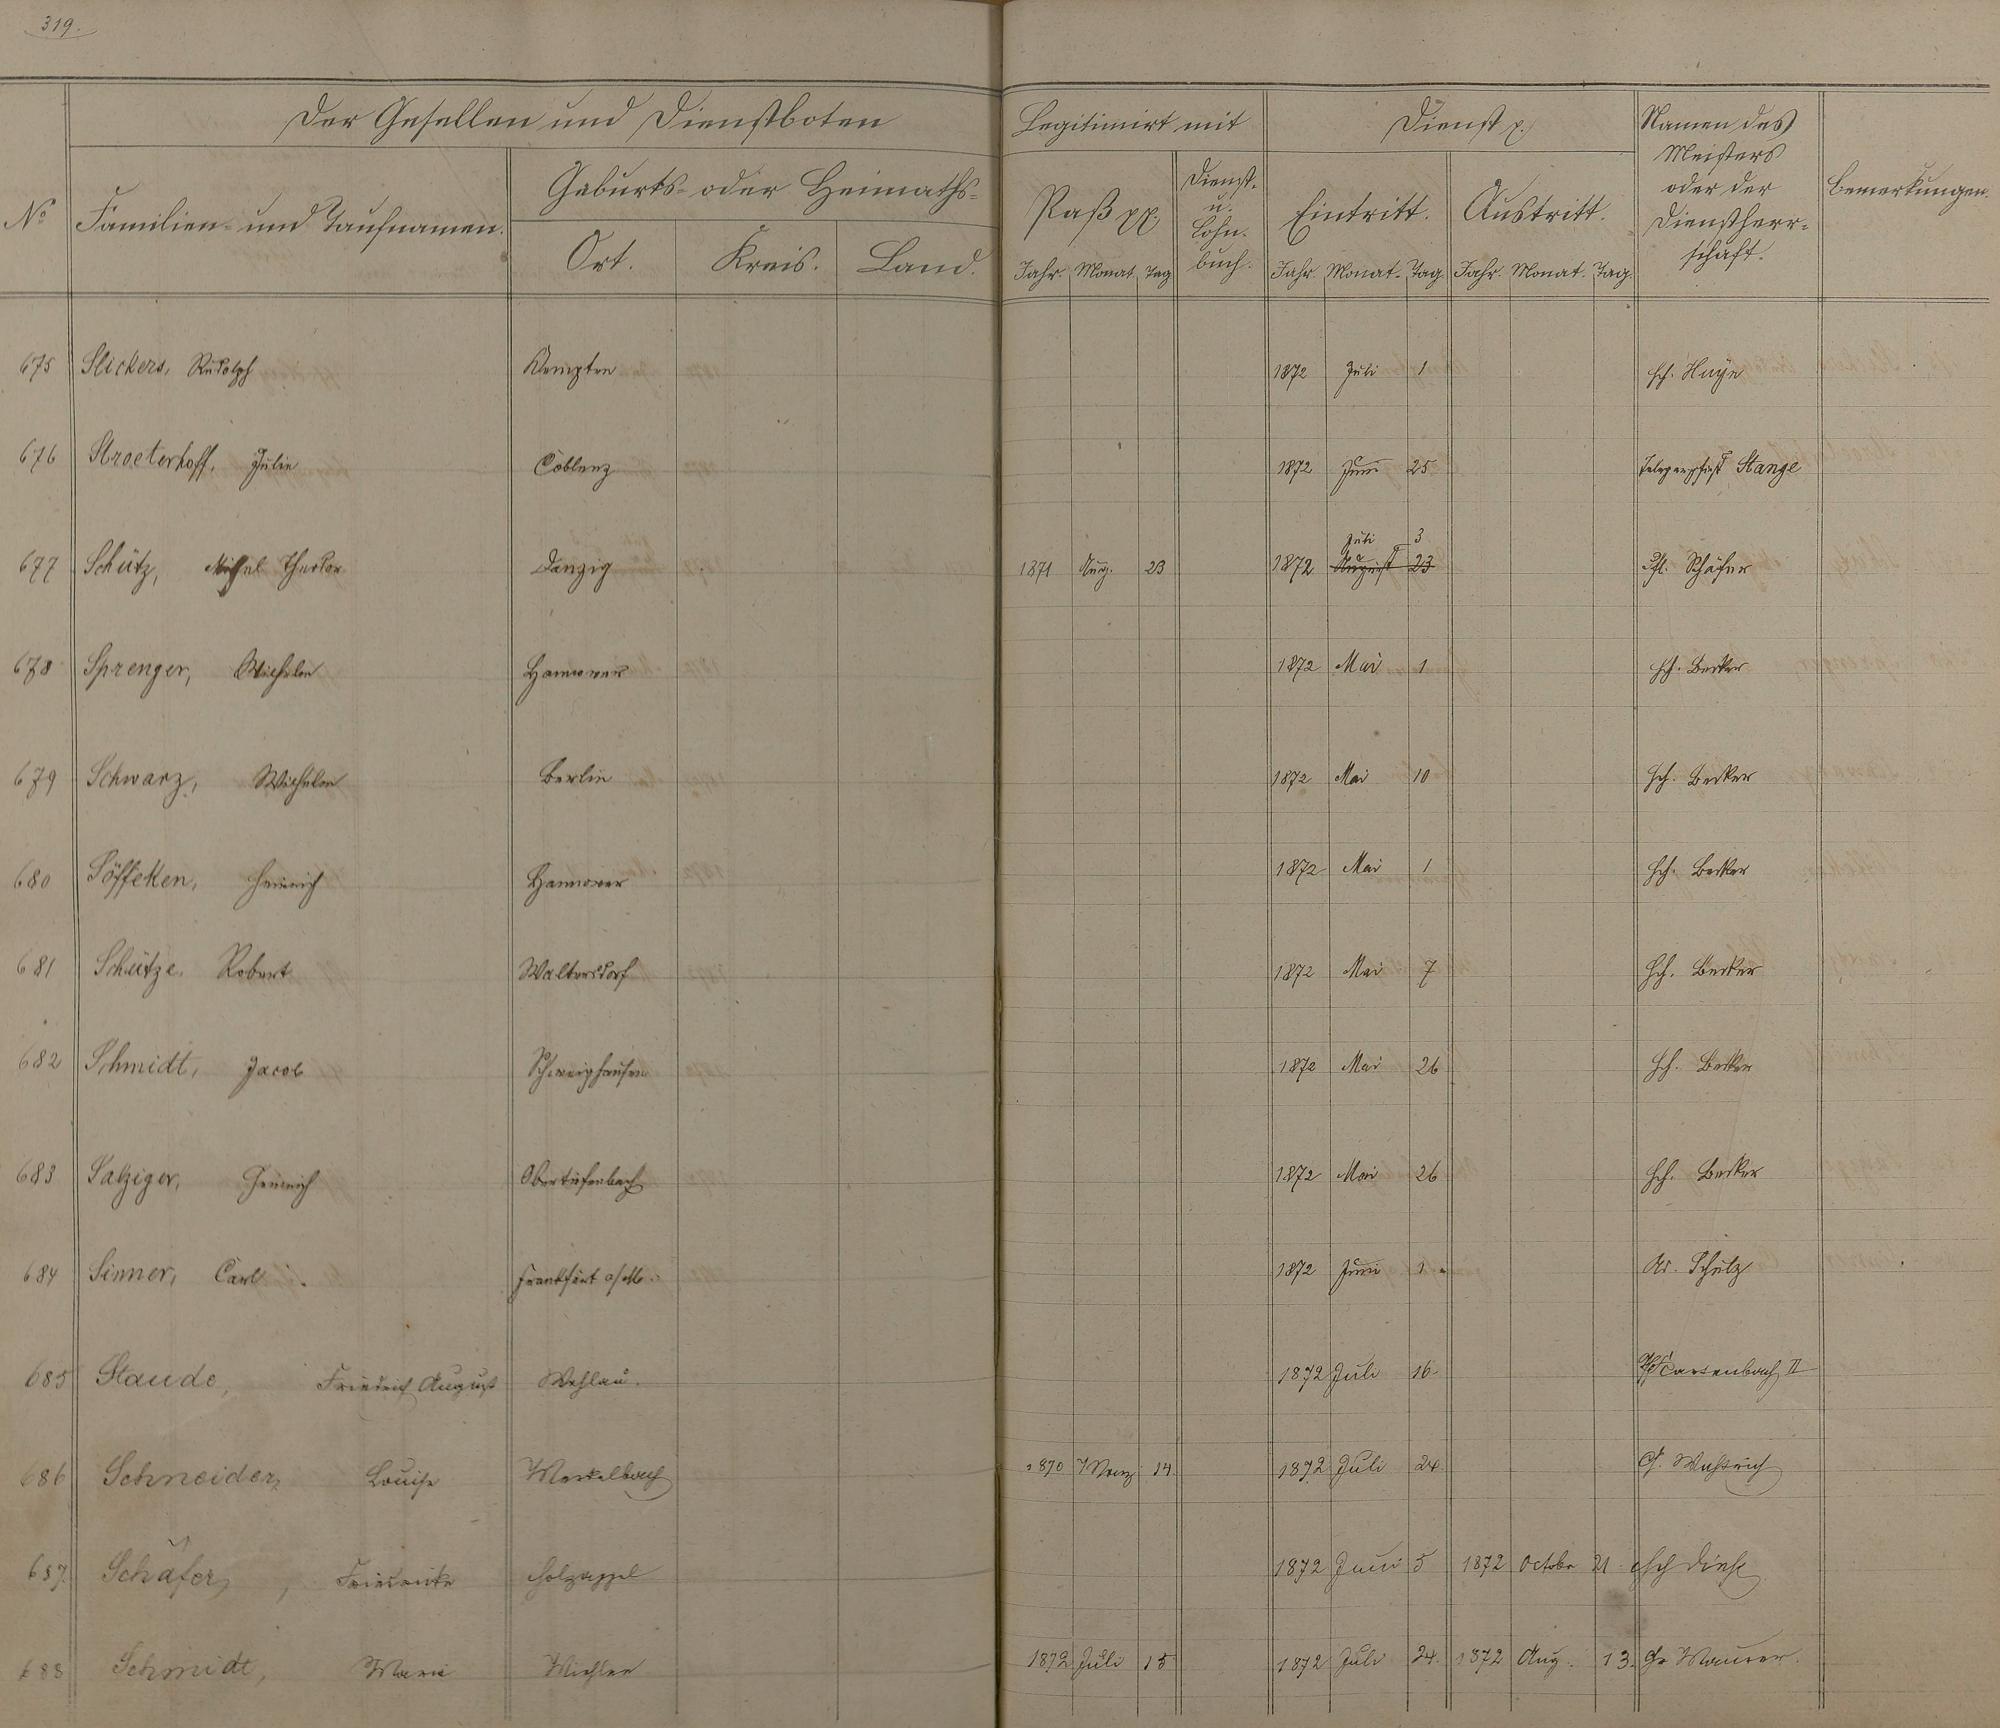 319.
Der Gesellen und Dienstboten
Legitimirt mit
Dienst p.
Namen des
Meisters
oder der
Dienstherr-
schaft.
Bemerkungen.
No
Familien- und Taufnamen.
Geburts- oder Heimaths-
Ort. Kreis. Land.
Paß pp.
Dienst-
u.
Lohn-
buch.
Eintritt. Austritt.
Jahr. Monat. Tag Jahr. Monat. Tag. Jahr. Monat. Tag.
675 Slickers, Rudolph Kempten 1872 Juli 1 Hch. Haye
676 Stroeterhoff, Julie Coblenz 1872 Juni 25 Stange
Juli 3
677 Schütz, Theodor Danzig 1871 Aug. 23 1872 August 23 Schäfer
678 Sprenger, Wilhelm Hannover 1872 Mai 1 Hch. Becker
679 Schwarz, Wilhelm Berlin 1872 Mai 10 Hch. Becker
680 Söffeken, Heinrich Hannover 1872 Mai 1 Hch. Becker
681 Schütze, Robert Waltersdorf 1872 Mai 7 Hch. Becker
682 Schmidt, Jacob Schweighausen 1872 Mai 26 Hch. Becker
683 Salziger, Heinrich Obertiefenbach 1872 Mai 26 Hch. Becker
684 Sinner, Carl Frankfurt a/M. 1872 Juni 1 Ad. Schulz
685 Staude, Friedrich August Wehlau. 1872 Juli 16 II
686 Schneider, Louise 1870 Merz 14 1872 Juli 24
687. Schäfer, Friederike Holzappel 1872 Juni 5 1872 Octobr 21 Hch
688 Schmidt, Marie Miehlen 1872 Juli 15 1872 Juli 24. 1872 Aug. 13. Maurer.